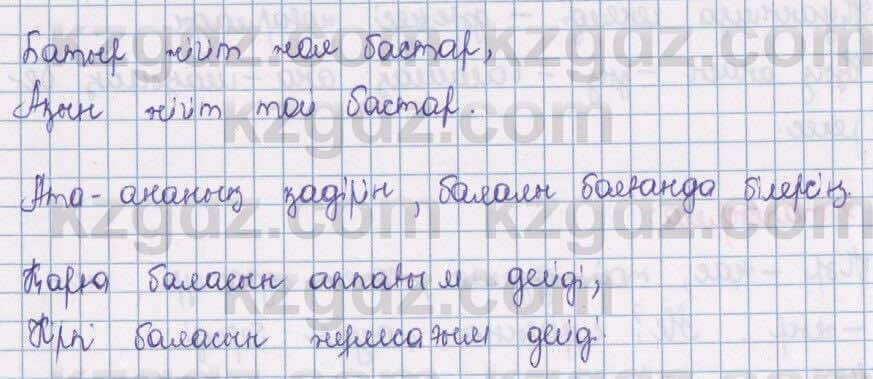 Батыр жігіт жол бастар,
Ақын жігіт той бастар.
Ата-ананың қадірін, балалы болғанда білерсің.
Қарға баласын аппағым дейді,
Кірпі баласын жұмсағым дейді.
kzgdz.com